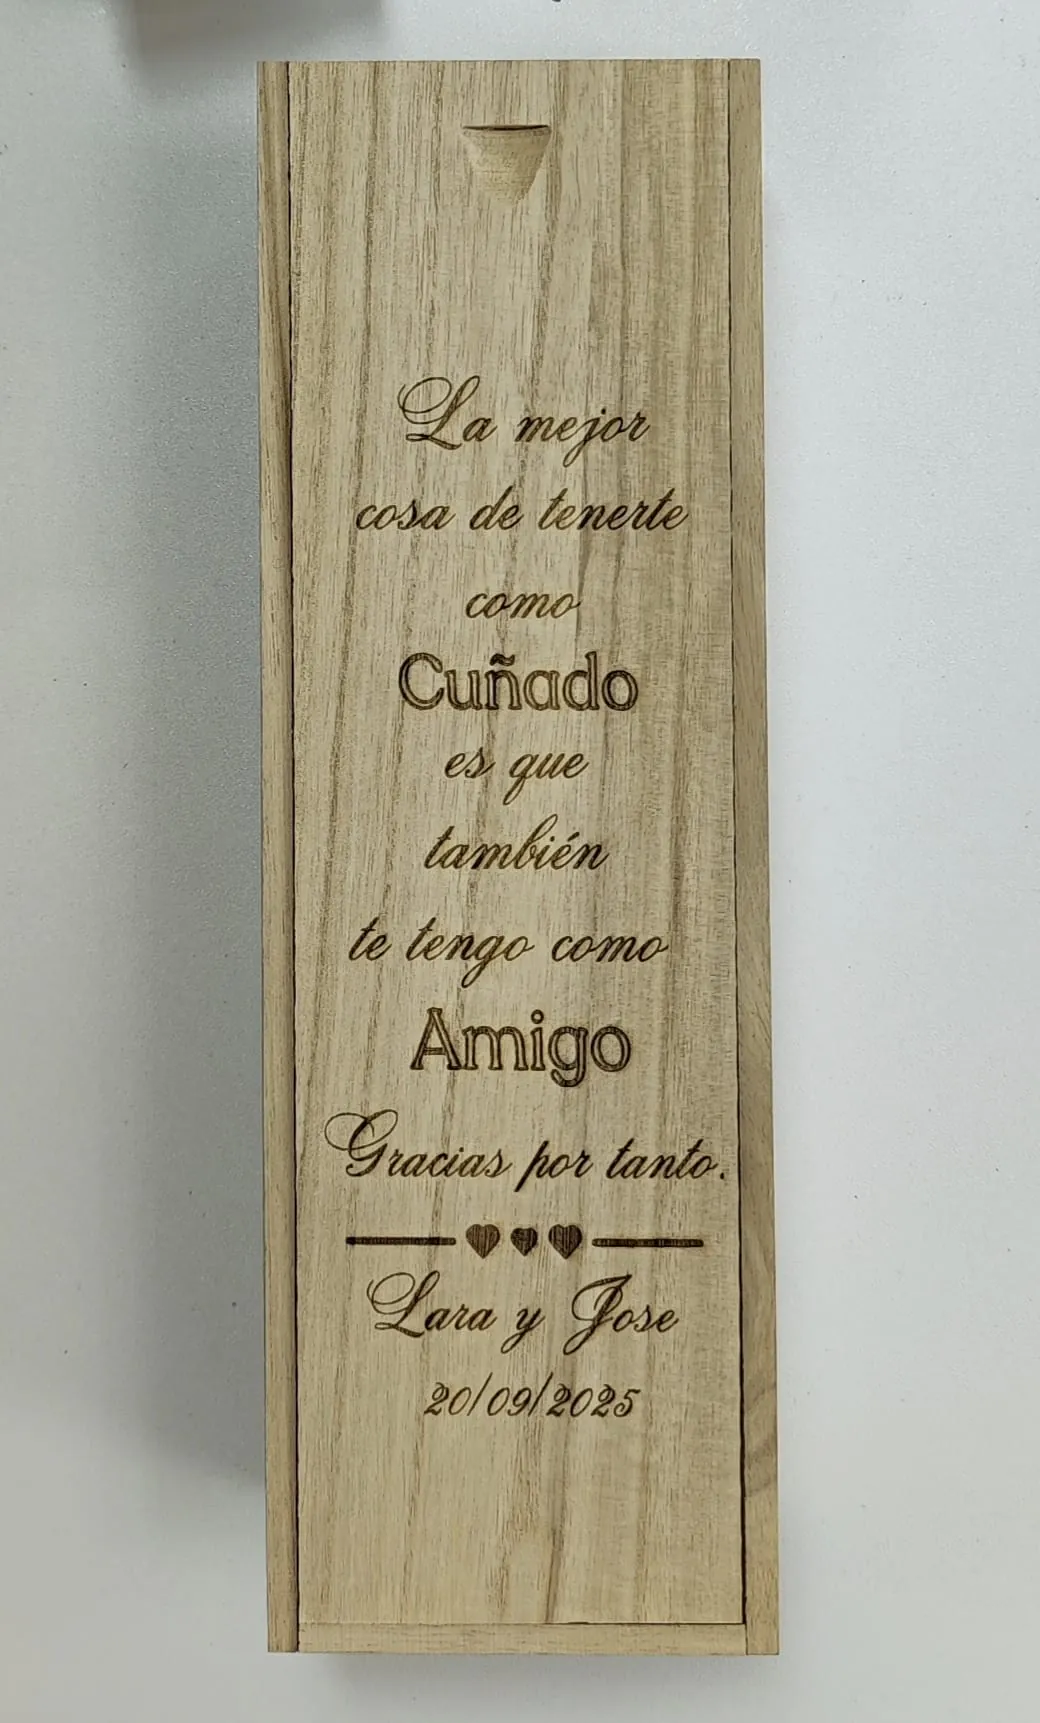 La mejor
cosa de tenerte
como
Cuñado
es que
también
te tengo como
Amigo
Gracias por tanto.
Lara y Jose
20/09/2025